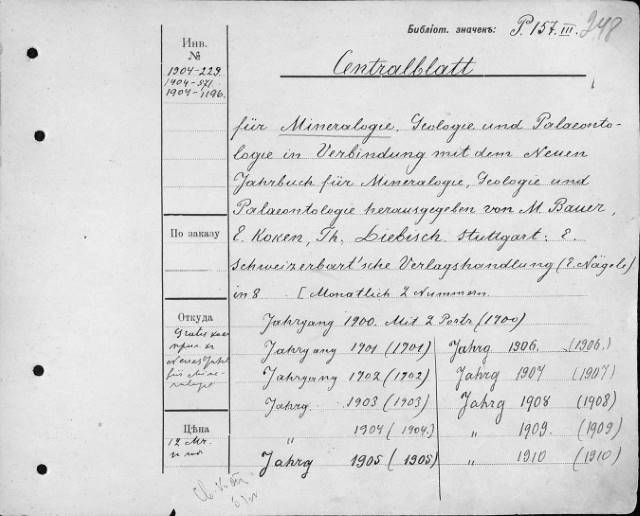 Библіот. значекъ: P. 157. III. 348
Инв.
№
1904-229.
1904-571.
1904-1196.
Centralblatt
für Mineralogie, Geologie und Palaeonto-
logie in Verbindung mit dem Neuen
Jahrbuch für Mineralogie, Geologie und
Palaeontologie herausgegeben von M. Bauer,
E. Koken, Th. Liebisch. Stuttgart: E.
Schweizerbart'sche Verlagshandlung (E. Nägele)
in 8 [Monatlich 2 Nummern.
По заказу
Откуда
Gratis как
прил. къ
Neues Jahrb
für Mine-
ralogie
Цѣна
12 Mr.
Jahrgang 1900. Mit 2 Portr (1900)
Jahrgang 1901 (1901)
Jahrgang 1902 (1902)
Jahrg. 1903 (1903)
„ 1904 (1904.)
Jahrg 1905 (1905)
Jahrg 1906. (1906.)
Jahrg 1907 (1907)
Jahrg 1908 (1908)
„ 1909. (1909)
„ 1910 (1910)